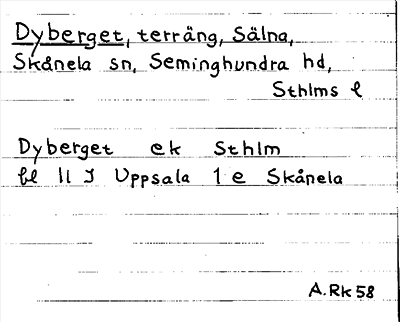 Dyberget, terräng, Sälna,
Skånela sn, Seminghundra hd,
Sthlms l
Dyberget ek Sthlm
bl 11 I Uppsala 1 e Skånela
A.Rk 58